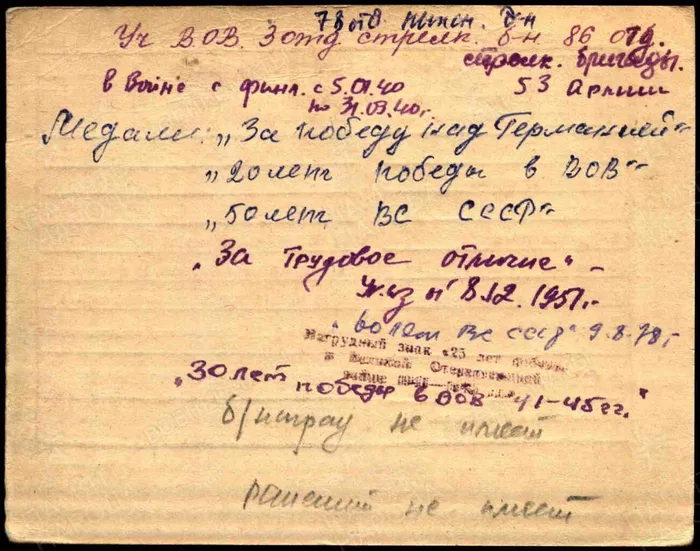 78 отд. б-н
Уч В.О.В. 3 отд. стрелк. б-н 86 отд.
стрелк. бригады.
в войне с финл. с 5.01.40
53 Армии
по 31.03.40г.
Медали: „За победу над Германией"
„20 лет победы в ВОВ"
„50 лет ВС СССР"
„За трудовое отличие"
Указ от 8.12.1951г.
„60 лет ВС СССР" 9.8.78г.
Нагрудный знак «25 лет победы
в Великой Отечественной
войне
„30 лет
победы в ВОВ 41-45гг."
б/наград не имеет
ранений не имеет